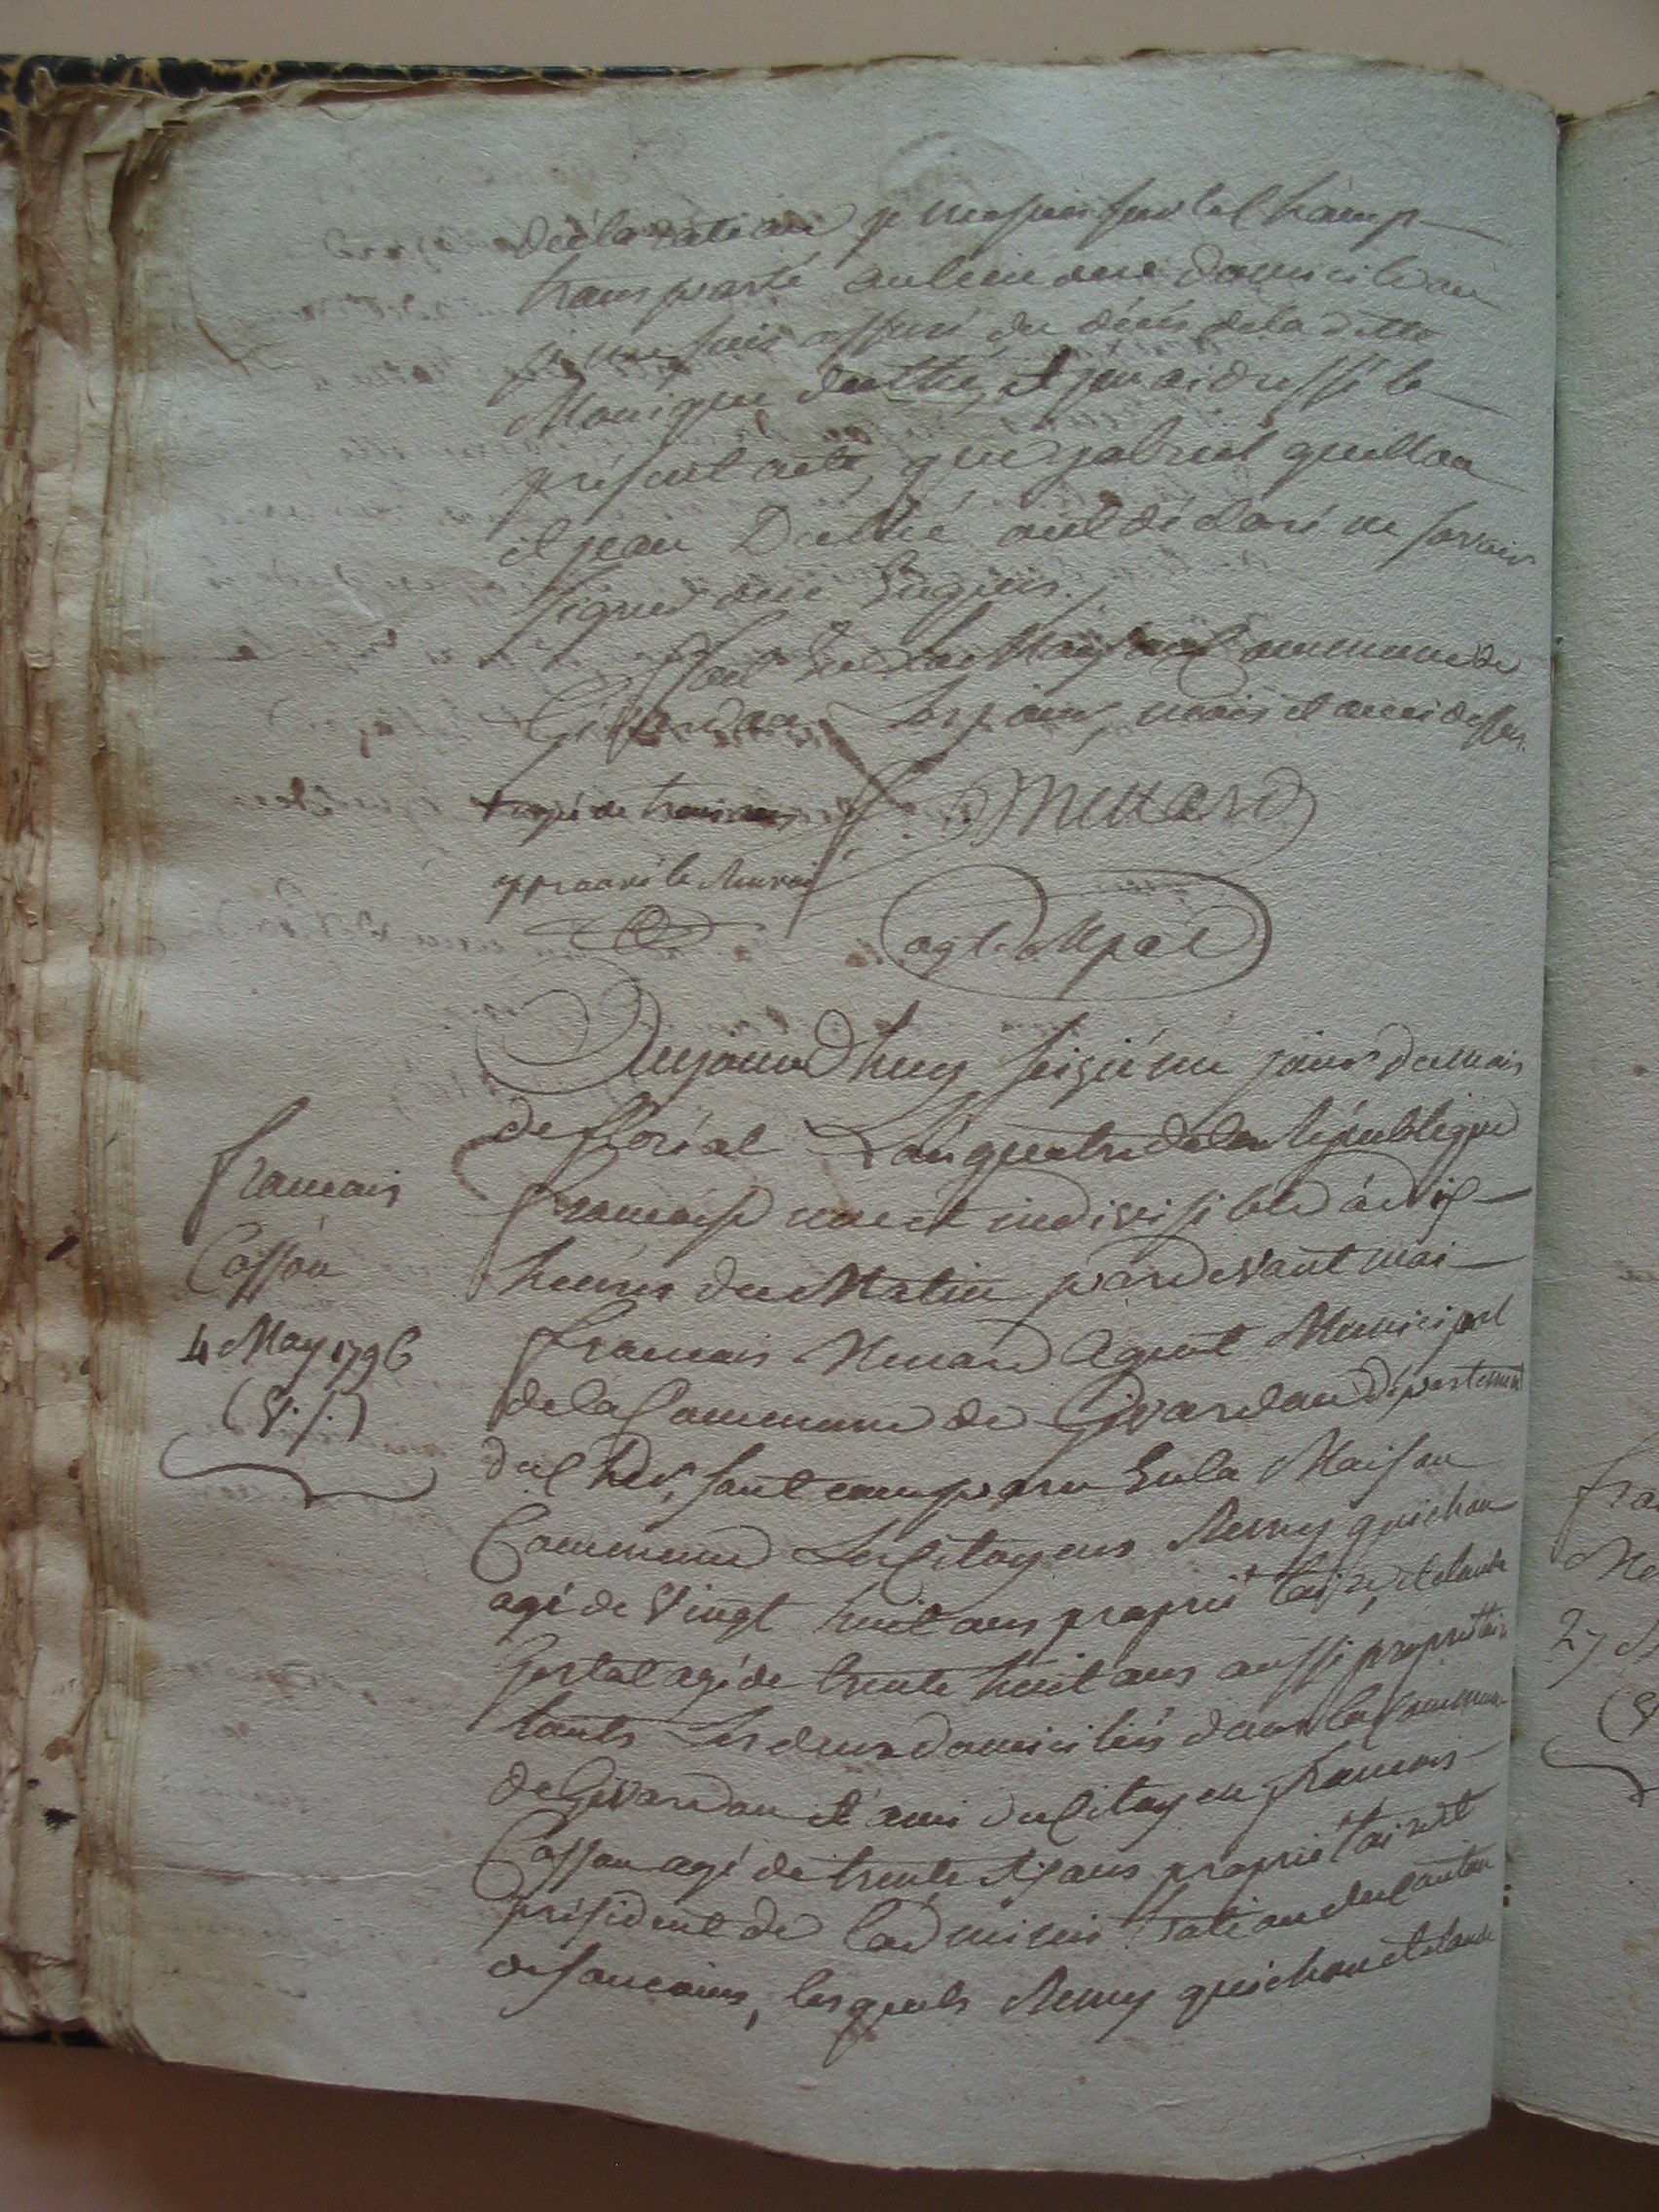 déclaration je me suis sur le Champ
transporté au lieu de ce domicile ou
je me suis assuré du décès de la ditte
Monique duthié, et j'en ai dressé le
présent acte, que gabriel guillou
et jean Duthié ont déclaré ne savoir
signer de ce Enquis.
fait En la Maison Commune de
Givardon Les jour, mois et an ci dessus.
+ agé de trois ans
f. Menard
approuvé le Renvoi
agt Mpal
Aujourd'huy seizième jour du mois
de floréal L'an quatre de la République
francaise une et indivisible à dix
heures du Matin pardevant moi
francois Menard Agent Municipal
de la Commune de Givardon Département
du Cher, sont comparu En la Maison
Commune Les Citoyens Remy guichon
agé de Vingt huit ans propriétaire, et claude
agé de trente huit ans aussi propriétaire
touts Les deux domiciliés dans la Commune
de Givardon et amis du Citoyen francois
Cosson agé de trente six ans propriétaire et
président de L'administration du Canton
de sancoins, lesquels Remy guichon et claude
francois
Cosson
4 May 1796
(V. S.)
fra
Me
27
(V